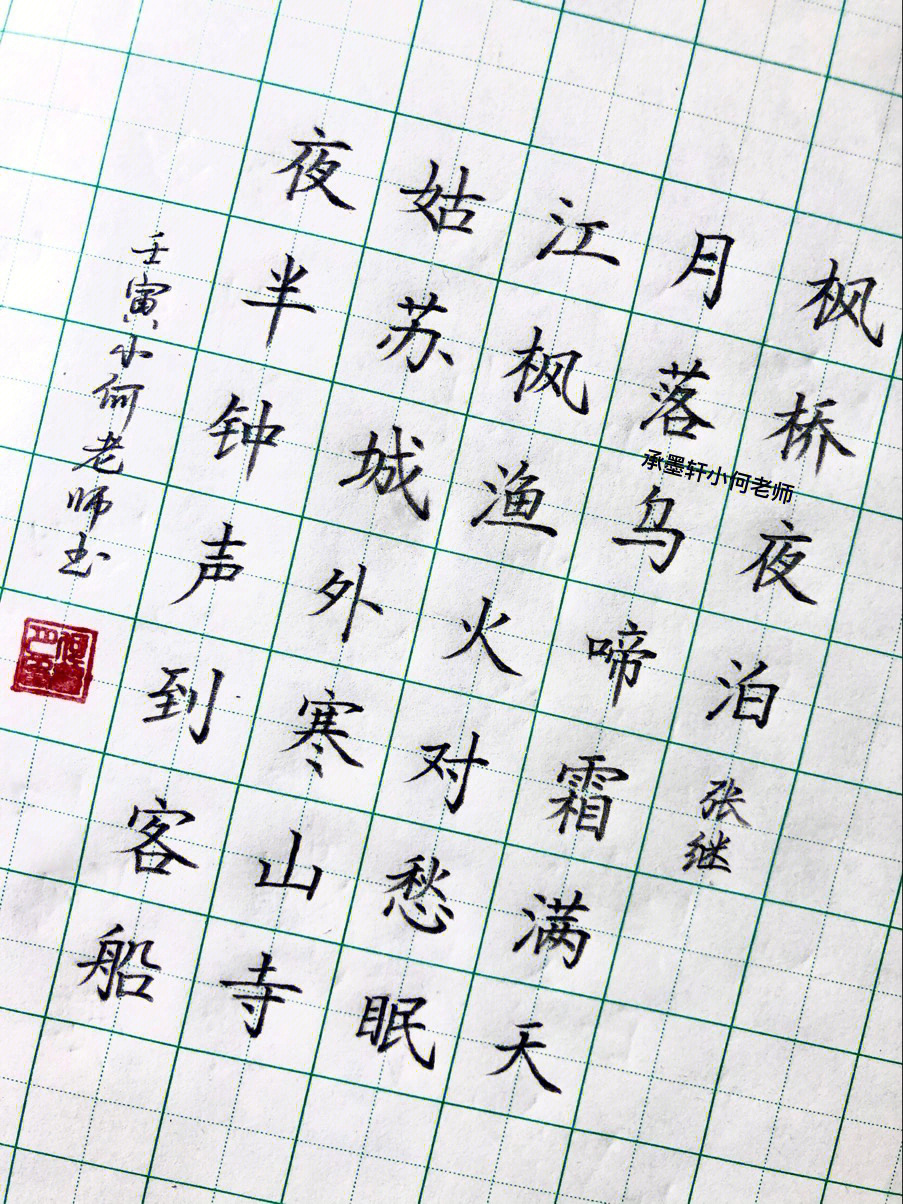 枫桥夜泊
张继
月落乌啼霜满天
江枫渔火对愁眠
姑苏城外寒山寺
夜半钟声到客船
壬寅小何老师书
承墨轩小何老师